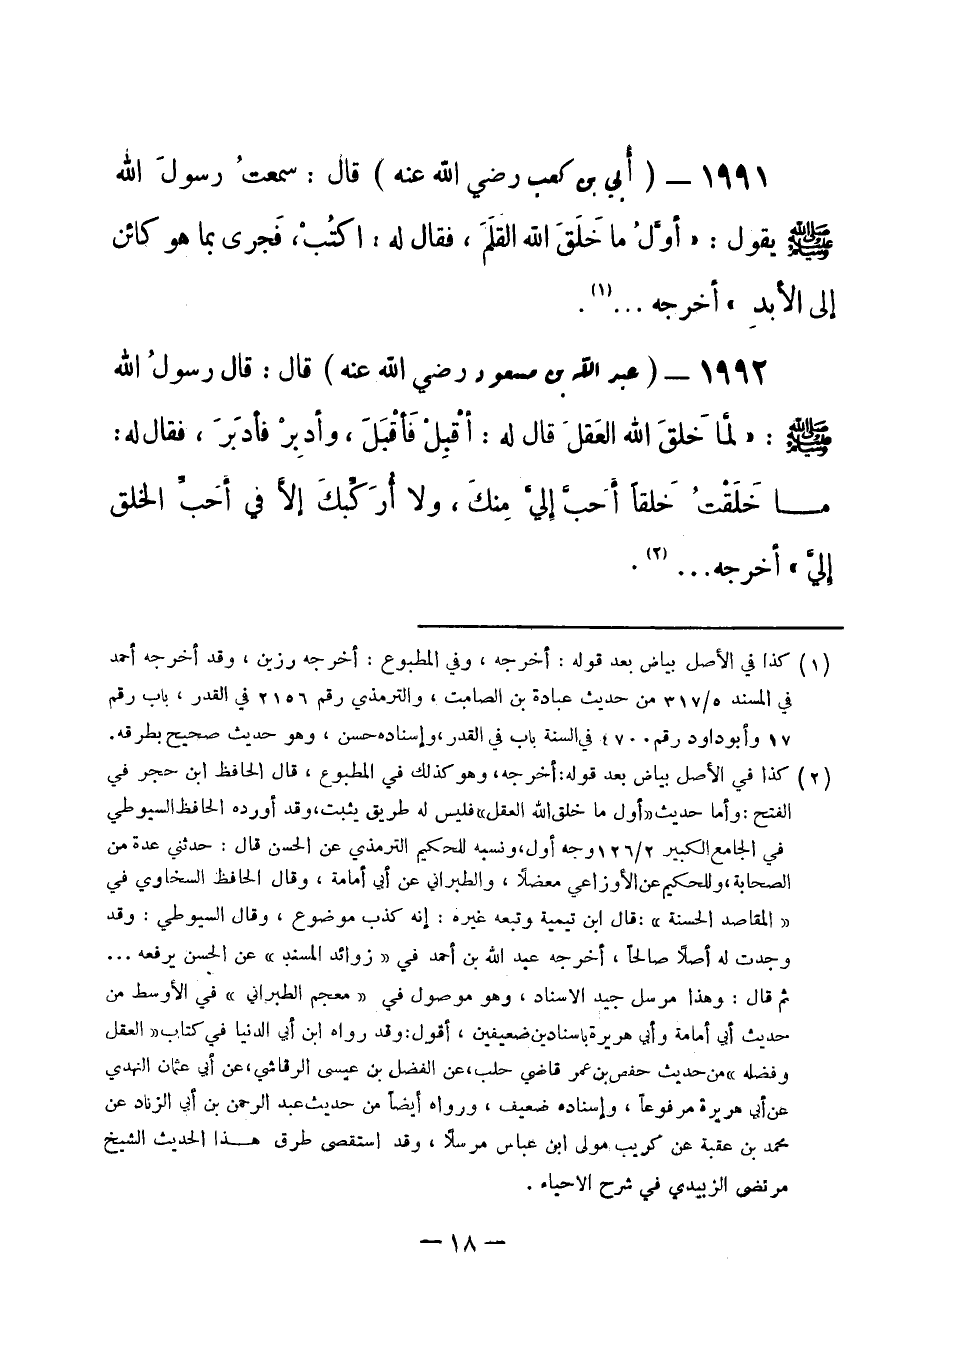 ١٩٩١ – ( أُبي بن كعب رضي الله عنه ) قال : سمعتُ رسولَ الله
ﷺ يقول : « أوَّلُ ما خَلَقَ الله القلَمَ ، فقال له : اكتُبْ، فَجرى بما هو كائن
إلى الأبدِ » أخرجه ... (١) .
١٩٩٢ – ( عبد الله بن مسعود رضي الله عنه ) قال : قال رسولُ الله
ﷺ : « لمَّا خَلقَ الله العَقلَ قال له : أقْبِلْ فَأقْبَلَ ، وأدبِرْ فأدبَرَ ، فقال له:
مـــا خَلَقْتُ خَلقاً أحَبَّ إليَّ مِنكَ ، ولا أُرَكِّبكَ إلاَّ في أَحَبِّ الخلق
إليَّ » أخرجه... (٢) .
(١) كذا في الأصل بياض بعد قوله : أخرجه ، وفي المطبوع : أخرجه رزين ، وقد أخرجه أحمد
في المسند ٣١٧/٥ من حديث عبادة بن الصامت ، والترمذي رقم ٢١٥٦ في القدر ، باب رقم
١٧ وأبوداود رقم ٤٧٠٠ في السنة باب في القدر،وإسناده حسن ، وهو حديث صحيح بطرقه.
(٢) كذا في الأصل بياض بعد قوله:أخرجه، وهو كذلك في المطبوع ، قال الحافظ ابن حجر في
الفتح :وأما حديث«أول ما خلق الله العقل»فليس له طريق يثبت،وقد أورده الحافظ السيوطي
في الجامع الكبير ١٢٦/٢ وجه أول،ونسبه للحكيم الترمذي عن الحسن قال : حدثني عدة من
الصحابة،وللحكيم عن الأوزاعي معضلاً ، والطبراني عن أبي أمامة ، وقال الحافظ السخاوي في
« المقاصد الحسنة » :قال ابن تيمية وتبعه غيره : إنه كذب موضوع ، وقال السيوطي : وقد
وجدت له أصلاً صالحاً ، أخرجه عبد الله بن أحمد في « زوائد المسند » عن الحسن يرفعه ...
ثم قال : وهذا مرسل جيد الاسناد ، وهو موصول في « معجم الطبراني » في الأوسط من
حديث أبي أمامة وأبي هريرة باسنادين ضعيفين ، أقول:وقد رواه ابن أبي الدنيا في كتاب« العقل
وفضله »من حديث حفص بن عمر قاضي حلب،عن الفضل بن عيسى الرقاشي،عن أبي عثمان النهدي
عن أبي هريرة مرفوعاً ، وإسناده ضعيف ، ورواه أيضاً من حديث عبد الرحمن بن أبي الزناد عن
محمد بن عقبة عن كريب مولى ابن عباس مرسلاً ، وقد استقصى طرق هـــذا الحديث الشيخ
مرتضى الزبيدي في شرح الاحياء .
– ١٨ –